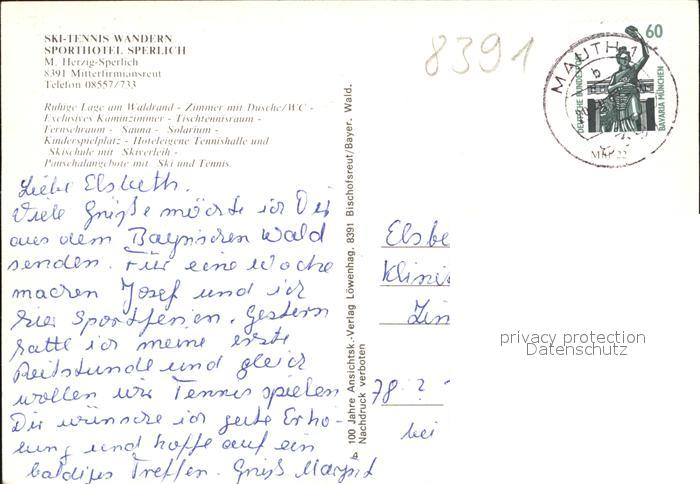 SKI-TENNIS WANDERN
SPORTHOTEL SPERLICH
M. Herzig-Sperlich
8391 Mitterfirmiansreut
Telefon 08557/733
Ruhige Lage am Waldrand - Zimmer mit Dusche/WC -
Exclusives Kaminzimmer - Tischtennisraum -
Fernsehraum - Sauna - Solarium -
Kinderspielplatz - Hoteleigene Tennishalle und
Skischule mit Skiverleih -
Pauschalangebote mit Ski und Tennis.
8391
60
DEUTSCHE BUNDESPOST
BAVARIA MÜNCHEN
MAUTH 1
b
Liebe Elsbeth.
Viele Grüße möchte ich Dir
aus dem Bayrischen Wald
senden. Für eine Woche
machen Josef und ich
hier Sportferien. Gestern
hatte ich meine erste
Reitstunde und gleich
wollen wir Tennis spielen
Dir wünsche ich gute Erho-
lung und hoffe auf ein
baldiges Treffen. Gruß Margret
100 Jahre Ansichtsk.-Verlag Löwenhag, 8391 Bischofsreut/Bayer. Wald.
Nachdruck verboten
Elsbe
Klini
Zim
78 ? ?
bei
privacy protection
Datenschutz